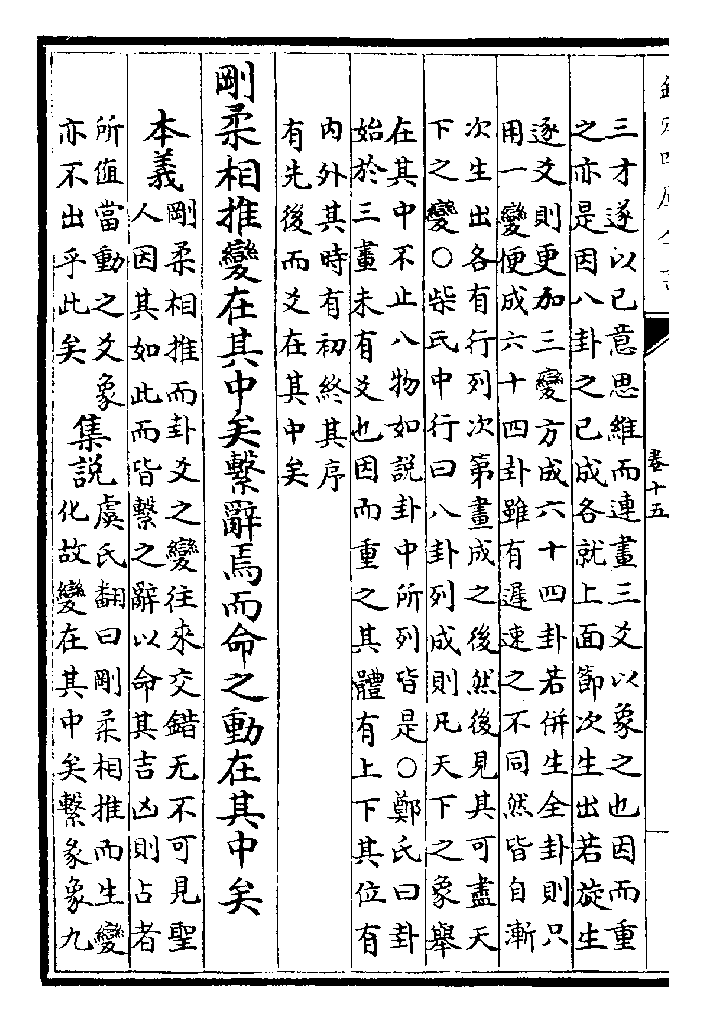 欽定四庫全書
卷十五
三才遂以已意思維而連畫三爻以象之也因而重
之亦是因八卦之已成各就上面節次生出若旋生
逐爻則更加三變方成六十四卦若併生全卦則只
用一變便成六十四卦雖有遲速之不同然皆自漸
次生出各有行列次第畫成之後然後見其可盡天
下之變○柴氏中行曰八卦列成則凡天下之象舉
在其中不止八物如説卦中所列皆是○鄭氏曰卦
始於三畫未有爻也因而重之其體有上下其位有
内外其時有初終其序
有先後而爻在其中矣
剛柔相推變在其中矣繫辭焉而命之動在其中矣
本義
剛柔相推而卦爻之變往來交錯无不可見聖
人因其如此而皆繫之辭以命其吉凶則占者
所值當動之爻象
亦不出乎此矣
集説
虞氏翻曰剛柔相推而生變
化故變在其中矣繫彖象九